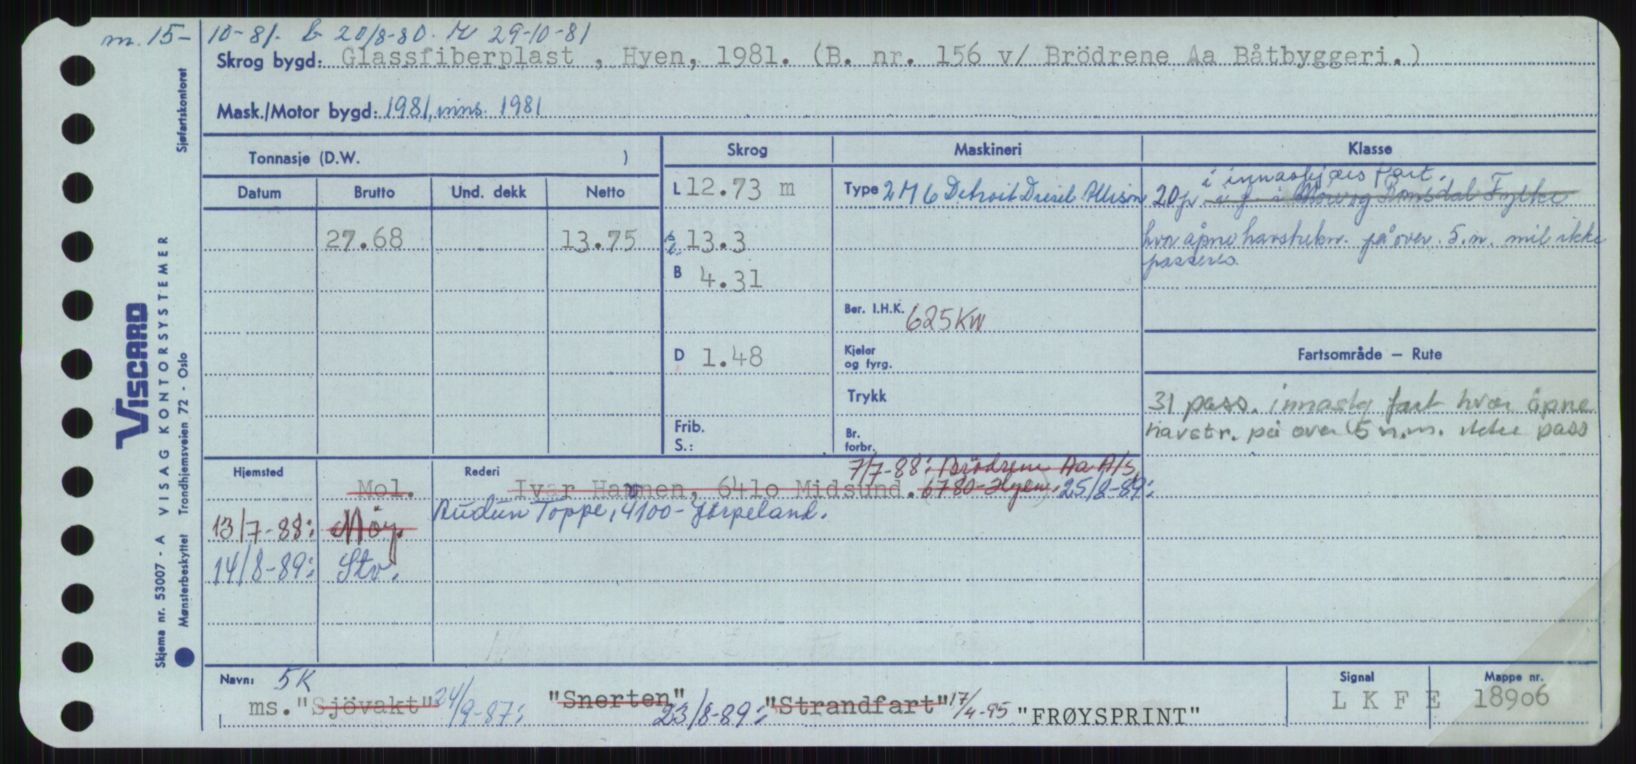 m. 15- 10-81. b 20/8-80. K 29-10-81
Skrog bygd: Glassfiberplast , Hyen, 1981. (B. nr. 156 v/ Brödrene Aa Båtbyggeri.)
Mask./Motor bygd: 1981, inns. 1981
Tonnasje (D.W. )
Skrog
Maskineri
Klasse
Datum Brutto Und. dekk Netto
27.68 13.75
L 12.73 m
13.3
B 4.31
D 1.48
Frib.
S.:
Type 2 M 6 Detroit Diesel Allison
Ber. I.H.K. 625 KW
Kjeler
og fyrg.
Trykk
Br.
forbr.
i innaskjærs fart.
20 p i f. i Möre og Romsdal Fylke
hvor åpne havstrekn. på over 5 n. mil ikke
passeres
Fartsområde – Rute
31 pass. innaskj fart hvor åpne
havstr. på over 5 n.m. ikke pass
Hjemsted
Rederi
7/7-88: Brödrene Aa A/S,
Mol. Ivar Hamnen, 6410 Midsund. 6780-Hyen. 25/8-89:
13/7-88: Møy. Audun Toppe, 4100-Jørpeland.
14/8-89: Stv.
Navn: 5K
ms. "Sjövakt" 24/9-87: "Snerten" 23/8-89: "Strandfart" 17/4-95 "FRØYSPRINT"
Signal
L K F E
Mappe nr.
18906
Sjøfartskontoret
VISCARD
VISAG KONTORSYSTEMER
Skjema nr. 53007 - A
Mønsterbeskyttet Trondhjemsveien 72 - Oslo